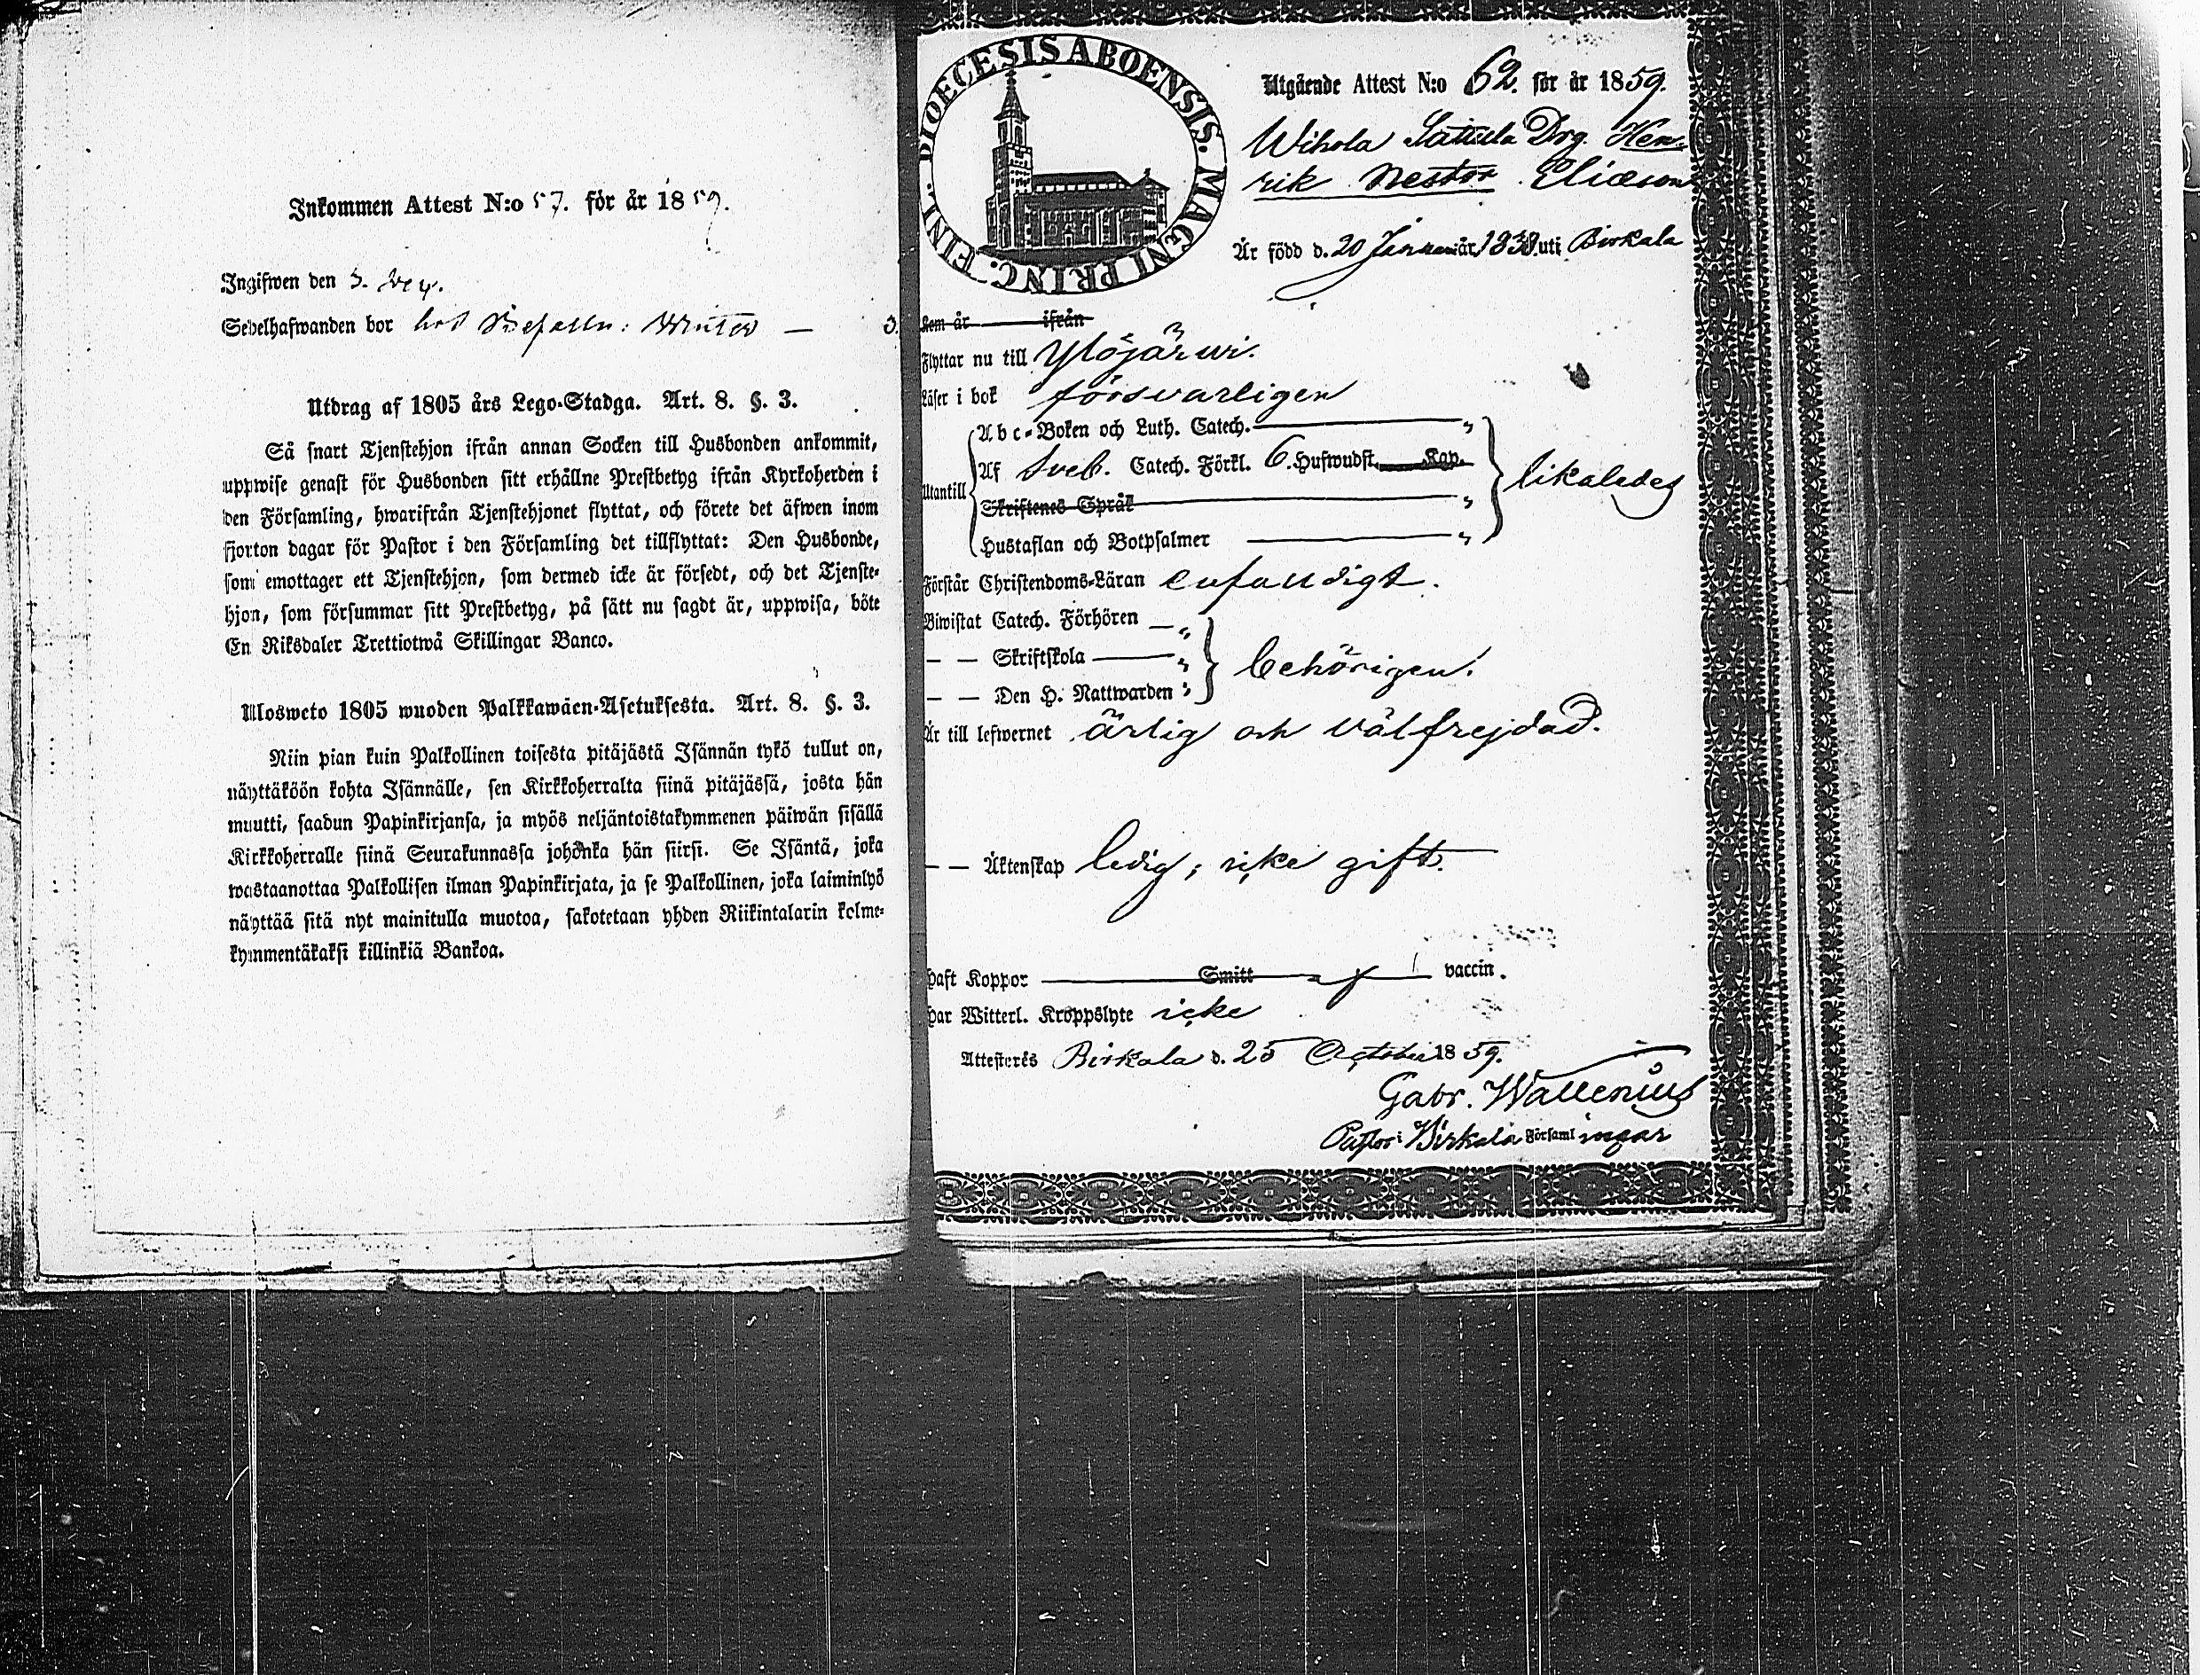 Inkommen Attest N:o 57. för år 1859.
Ingifwen den 3.
Sedelhafwanden bor hos Befalln: Winter —
Utdrag af 1805 års Lego-Stadga. Art. 8. §. 3.
Så snart Tjenstehjon ifrån annan Socken till Husbonden ankommit,
uppwise genast för Husbonden sitt erhållne Prestbetyg ifrån Kyrkoherden i
den Församling, hwarifrån Tjenstehjonet flyttat, och förete det äfwen inom
fjorton dagar för Pastor i den Församling det tillflyttat: Den Husbonde,
som emottager ett Tjenstehjon, som dermed icke är försedt, och det Tjenste-
hjon, som försummar sitt Prestbetyg, på sätt nu sagdt är, uppwisa, böte
En Riksdaler Trettiotwå Skillingar Banco.
Ulosweto 1805 wuoden Palkkawäen-Asetuksesta. Art. 8. §. 3.
Niin pian kuin Palkollinen toisesta pitäjästä Isännän tykö tullut on,
näyttäköön kohta Isännälle, sen Kirkkoherralta siinä pitäjässä, josta hän
muutti, saadun Papinkirjansa, ja myös neljäntoistakymmenen päiwän sisällä
Kirkkoherralle siinä Seurakunnassa johonka hän siirsi. Se Isäntä, joka
wastaanottaa Palkollisen ilman Papinkirjata, ja se Palkollinen, joka laiminlyö
näyttää sitä nyt mainitulla muotoa, sakotetaan yhden Riikintalarin kolme-
kymmentäkaksi killinkiä Bankoa.
DIOECESIS ABOENSIS. MAGNI PRINC. FINL.
Utgående Attest N:o 62. för år 1859.
Wihola Sattula Drg. Hen-
rik Nestor Eliæson
Är född d. 20 Januari år 1838. uti Birkala
Kom år ifrån
Flyttar nu till Ylöjärwi.
Läser i bok försvarligen
Abc-Boken och Luth. Catech. — "
Utantill Af Sveb. Catech. Förkl. 6. Hufwudst. Kap. likaledes
Skriftenes Språk — "
Hustaflan och Botpsalmer — "
Förstår Christendoms-Läran enfaldigt.
Biwistat Catech. Förhören — "
— — Skriftskola — " behörigen.
— — Den H. Nattwarden "
Är till lefwernet ärlig och välfrejdad.
— — Äktenskap ledig; icke gift.
Haft Koppor — Smitt — vaccin.
Har Witterl. Kroppslyte icke
Attesteres Birkala d. 25 October 1859.
Gabr. Wallenius
Pastor i Birkala Församlingar